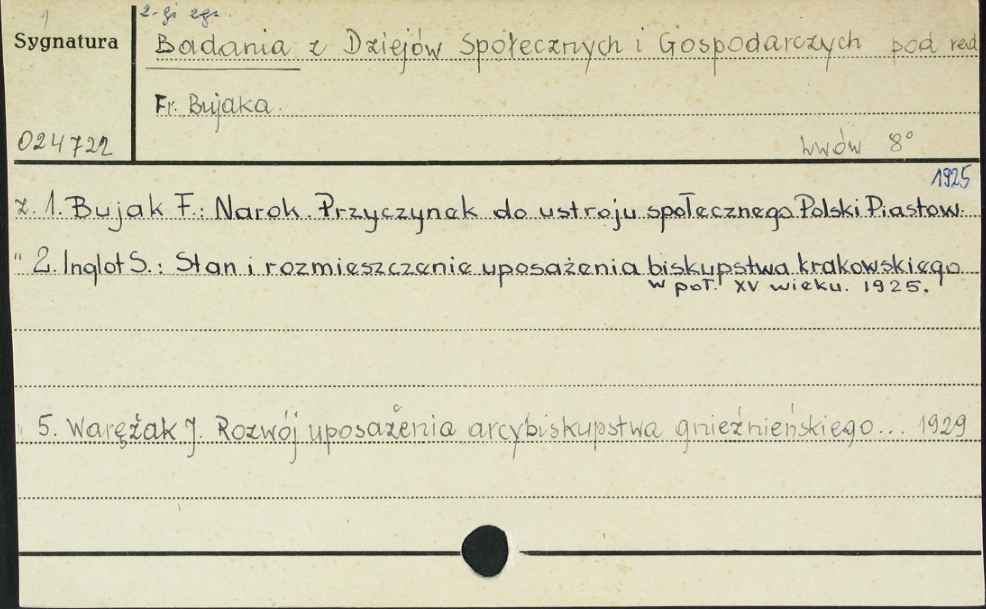 2-gi egz.
Sygnatura
Badania z Dziejów Społecznych i Gospodarczych pod red
Fr. Bujaka.
024722
Lwów 8°
1925
z. 1. Bujak F.: Narok. Przyczynek do ustroju społecznego Polski Piastow.
" 2. Inglot S.: Stan i rozmieszczenie uposażenia biskupstwa krakowskiego
w poł. XV wieku. 1925.
5. Warężak J. Rozwój uposażenia arcybiskupstwa gnieźnieńskiego... 1929